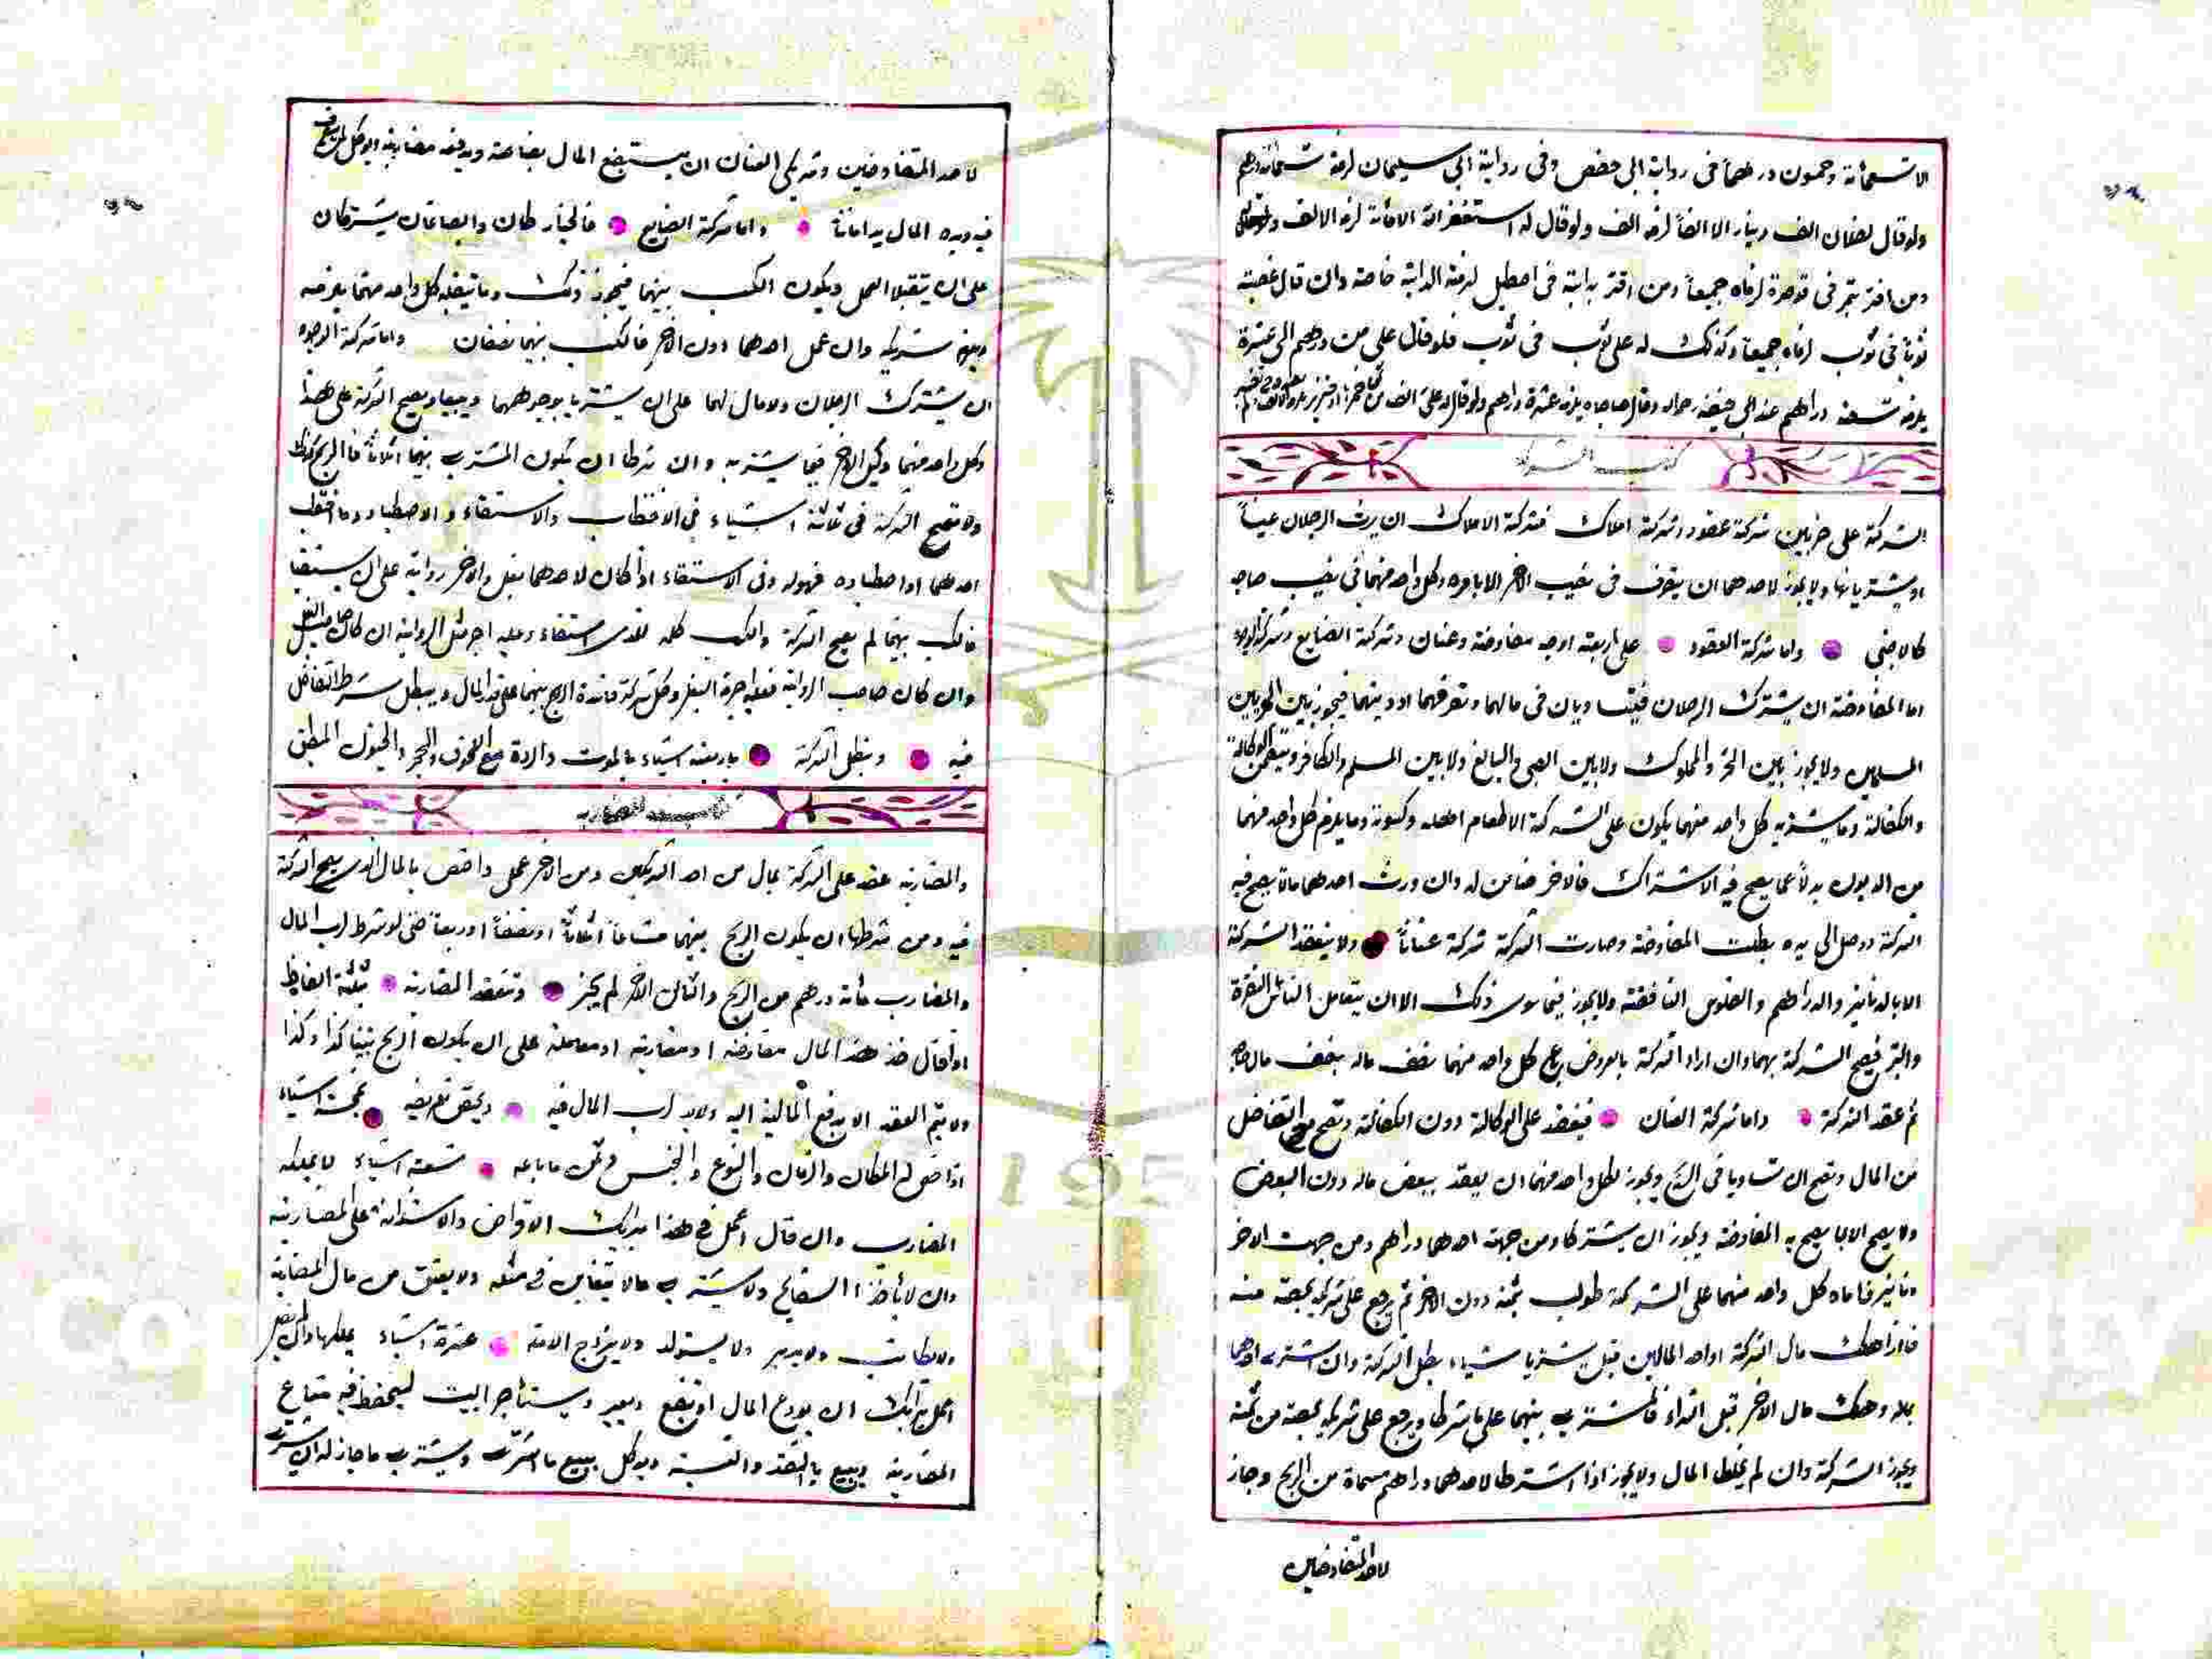 الا تسعمأية وخمسون درهماً فى رواية ابى حفص وفى رواية ابى سليمان لزمه تسعمائة درهم
ولو قال لفلان الف دينار الا الفاً لزمه الف ولو قال له استغفر الله الا مائة لزمه الالف
ومن اقر بتمر فى قوصرة لزماه جميعاً ومن اقر بدابة فى اصطبل لزمته الدابة خاصة وان قال غصبته
ثوباً فى ثوب لزماه جميعاً وكذلك له على ثوب فى ثوب فلو قال على من درهم الى عشرة
يلزمه تسعة دراهم عند ابى حنيفة رحمه الله وقال صاحباه يلزمه عشرة دراهم ولو قال له على الف من ثمن خمر او خنزير
كتاب الشركة
الشركة على ضربين شركة عقود وشركة املاك فشركة الاملاك ان يرث الرجلان عيناً
او يشتريانها ولا يجوز لاحدهما ان يتصرف فى نصيب الاخر الا بامره وكل واحد منهما فى نصيب صاحبه
كالاجنبى واما شركة العقود على اربعة اوجه مفاوضة وعنان وشركة الصنايع وشركة الوجوه
اما المفاوضة ان يشترك الرجلان فيتساويان فى مالهما وتصرفهما ودينهما فيجوز بين الحرين
المسلمين ولا يجوز بين الحر والمملوك ولا بين الصبى والبالغ ولا بين المسلم والكافر وتنعقد على الوكالة
والكفالة وما يشتريه كل واحد منهما يكون على الشركة الا طعام اهله وكسوته وما يلزم كل واحد منهما
من الديون بدلاً عما يصح فيه الاشتراك فالاخر ضامن له وان ورث احدهما مالا يصح فيه
الشركة ووصل الى يده بطلت المفاوضة وصارت الشركة شركة عناناً ولا ينعقد الشركة
الا بالدنانير والدراهم والفلوس النافقة ولا يجوز فيما سوى ذلك الا ان يتعامل الناس النقرة
والتبر فيصح الشركة بهما وان اراد الشركة بالعروض باع كل واحد منهما نصف ماله بنصف مال صاحبه
ثم عقد الشركة واما شركة العنان فينعقد على الوكالة دون الكفالة وتصح مع التفاضل
من المال وتصح ان تساويا فى الربح ويجوز لكل واحد منهما ان يعقد ببعض ماله دون البعض
ولا يصح الا بما يصح به المفاوضة ويجوز ان يشتركا ومن جهة احدهما دراهم ومن جهت الاخر
دنانير فاما كل واحد منهما على الشركة طولب بثمنه دون الاخر ثم يرجع على شريكه بحصته منه
فاذا هلك مال الشركة او احد المالين قبل يشتريا شياء بطل الشركة وان اشترى احدهما
بماله وهلك مال الاخر قبل الشراء فالمشترى بينهما على ما شرطا ويرجع على شريكه بحصته من ثمنه
ويجوز الشركة وان لم يخلط المال ولا يجوز اذا اشترطا لاحدهما دراهم مسماة من الربح وجاز
لاحد المتفاوضين
لاحد المتفاوضين وشريكى العنان ان يستبضع المال بضاعة ويدفعه مضاربة ويوكل من يتصرف
فيه ويده المال يد امانة واما شركة الصنايع فالخياطان والصباغان يشتركان
على ان يتقبلا العمل ويكون الكسب بينهما فيجوز ذلك وما يتقبله كل واحد منهما يلزمه
ويلزم شريكه وان عمل احدهما دون الاخر فالكسب بينهما نصفان واما شركة الوجوه
ان يشترك الرجلان ولا مال لهما على ان يشتريا بوجوههما ويبيعا ويصح الشركة على هذا
وكل واحد منهما وكيل الاخر فيما يشتريه وان شرطا ان يكون المشترى بينهما اثلاثاً فالربح كذلك
ولا تصح الشركة فى ثلاثة اشياء فى الاحتطاب والاستقاء والاصطياد وما احتطب
احدهما او اصطاده فهو له وفى الاستقاء اذا كان لاحدهما بغل والاخر رواية على ان يستقيا
فالكسب بينهما لم يصح الشركة والكسب كله للذى استقاء وعليه اجر مثل الرواية ان كان صاحب البغل
وان كان صاحب الرواية فعليه اجرة البغل وكل شركة فاسدة الربح بينهما على قدر المال ويبطل شرط التفاضل
فيه وتبطل الشركة باربعة اشياء بالموت والردة مع اللحوق والحجر والجنون المطبق
كتاب المضاربه
والمضاربة عقد على الشركة بمال من احد الشريكين ومن الاخر عمل واختص بالمال الذى يصح الشركة
فيه ومن شرطها ان يكون الربح بينهما مشاعاً اثلاثاً او نصفاً او ربعاً حتى لو شرط لرب المال
والمضارب مأية درهم من الربح والثانى الاخر لم يجز وتنعقد المضاربة بثلثة الفاظ
اذا قال خذ هذا المال مقارضة او مضاربة او معاملة على ان يكون الربح بيننا كذا وكذا
ولا يتم العقد الا بدفع المالية اليه ولا يد لرب المال فيه ويختص تفويضه بخمسة اشياء
اذا خص له المكان والزمان والنوع والجنس وثمن ما باعه تسعة اشياء لا يملكه
المضارب وان قال اعمل فى هذا برايك الاقراض والاستدانة على المضاربة
وان لا يأخذ السفاتج ولا يشترى مالا يتغابن فى مثله ولا يعتق من مال المضاربة
ولا يكاتب ولا يدبر ولا يستولد ولا يزوج الامة عشرة اشياء يملكها وان لم يقل
اعمل برايك ان يودع المال او يبضع ويعير ويستأجر البيت ليحفظ فيه متاع
المضاربة ويبيع بالنقد والنسية ويوكل ببيع ما اشترت ويشترى ما جاز له ان يشترى